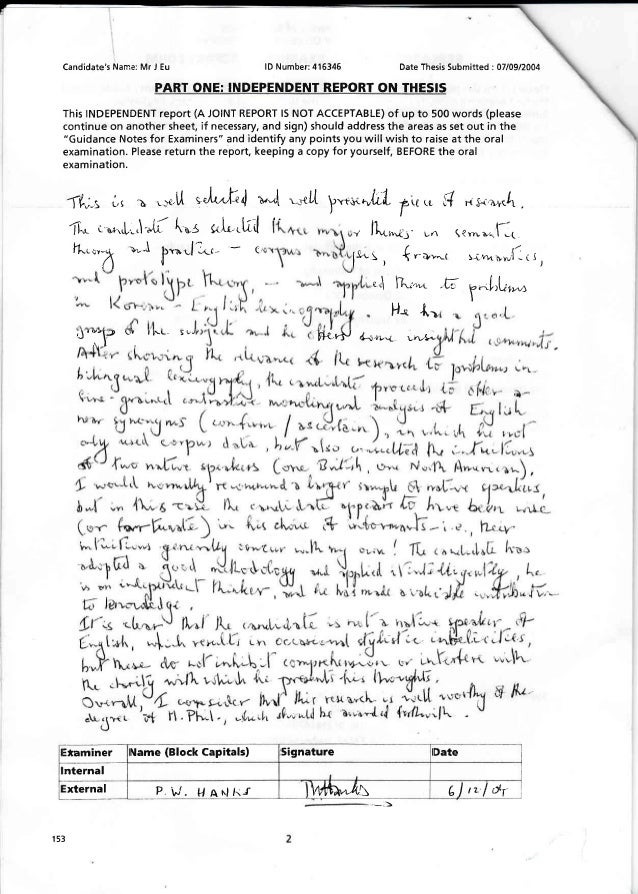 Candidate's Name: Mr J Eu ID Number: 416346 Date Thesis Submitted : 07/09/2004
PART ONE: INDEPENDENT REPORT ON THESIS
This INDEPENDENT report (A JOINT REPORT IS NOT ACCEPTABLE) of up to 500 words (please
continue on another sheet, if necessary, and sign) should address the areas as set out in the
"Guidance Notes for Examiners" and identify any points you will wish to raise at the oral
examination. Please return the report, keeping a copy for yourself, BEFORE the oral
examination.
This is a well selected and well presented piece of research.
The candidate has selected three major themes in semantic
theory and practice – corpus analysis, frame semantics,
and prototype theory, – and applied them to problems
in Korean - English lexicography. He has a good
grasp of the subject and he offers some insightful comments.
After showing the relevance of the research to problems in
bilingual lexicography, the candidate proceeds to offer a
fine-grained contrastive monolingual analysis of English
near synonyms (confirm / ascertain), in which he not
only used corpus data, but also consulted the intuitions
of two native speakers (one British, one North American).
I would normally recommend a larger sample of native speakers,
but in this case the candidate appears to have been wise
(or fortunate) in his choice of informants – i.e., their
intuitions generally concur with my own! The candidate has
adopted a good methodology and applied it intelligently, he
is an independent thinker, and he has made a valuable contribution
to knowledge.
It is clear that the candidate is not a native speaker of
English, which results in occasional stylistic infelicities,
but these do not inhibit comprehension or interfere with
the clarity with which he presents his thoughts.
Overall, I consider that this research is well worthy of the
degree of M.Phil., which should be awarded forthwith.
Examiner Name (Block Capitals) Signature Date
Internal
External P. W. HANKS PWHanks 6/12/04
153 2